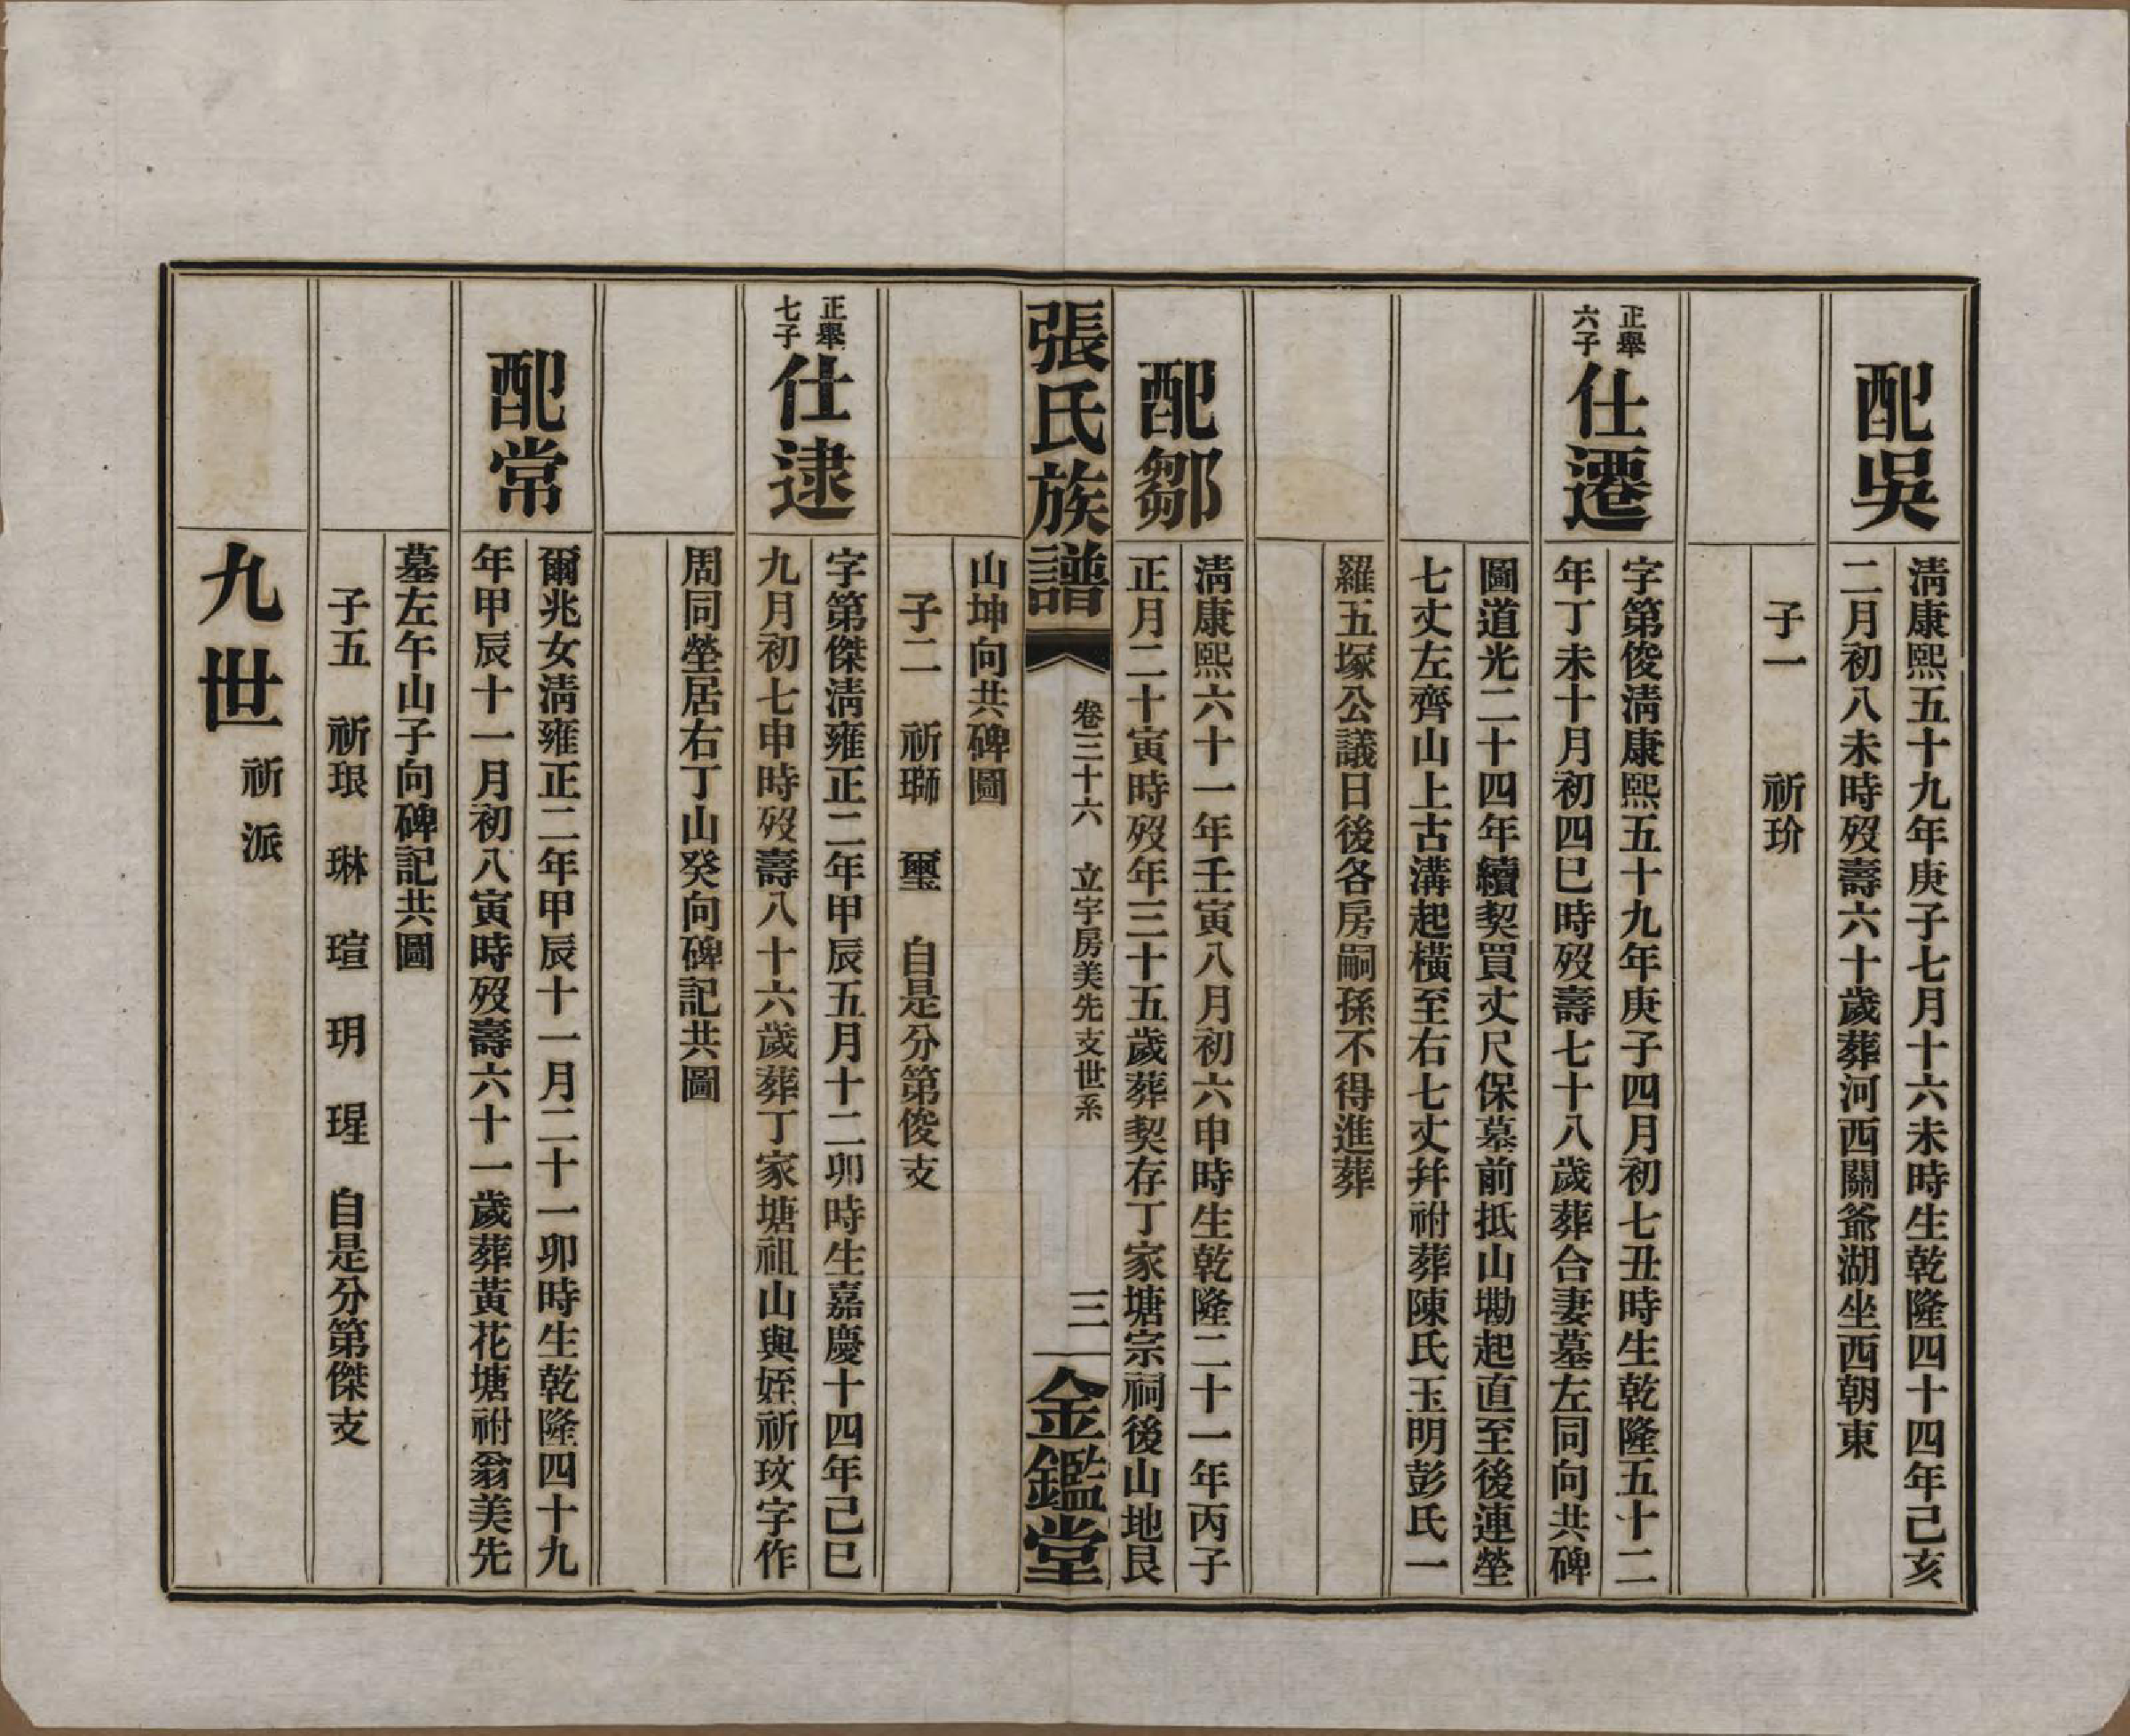 配吳
淸康熙五十九年庚子七月十六未時生乾隆四十四年己亥
二月初八未時歿壽六十歲葬河西關爺湖坐西朝東
子一　祈玠
正舉
六子
仕遷
字第俊淸康熙五十九年庚子四月初七丑時生乾隆五十二
年丁未十月初四巳時歿壽七十八歲葬合妻墓左同向共碑
圖道光二十四年續契買丈尺保墓前抵山墈起直至後連塋
七丈左齊山上古溝起橫至右七丈幷祔葬陳氏玉明彭氏一
羅五塚公議日後各房嗣孫不得進葬
配鄒
淸康熙六十一年壬寅八月初六申時生乾隆二十一年丙子
正月二十寅時歿年三十五歲葬契存丁家塘宗祠後山地艮
張氏族譜
卷三十六　立宇房美先支世系
三
金鑑堂
山坤向共碑圖
子二　祈瑡　璽　自是分第俊支
正舉
七子
仕逮
字第傑淸雍正二年甲辰五月十二卯時生嘉慶十四年己巳
九月初七申時歿壽八十六歲葬丁家塘祖山與姪祈玟字作
周同塋居右丁山癸向碑記共圖
配常
爾兆女淸雍正二年甲辰十一月二十一卯時生乾隆四十九
年甲辰十一月初八寅時歿壽六十一歲葬黃花塘祔翁美先
墓左午山子向碑記共圖
子五　祈珢　琳　瑄　玥　瑆　自是分第傑支
九世　祈派